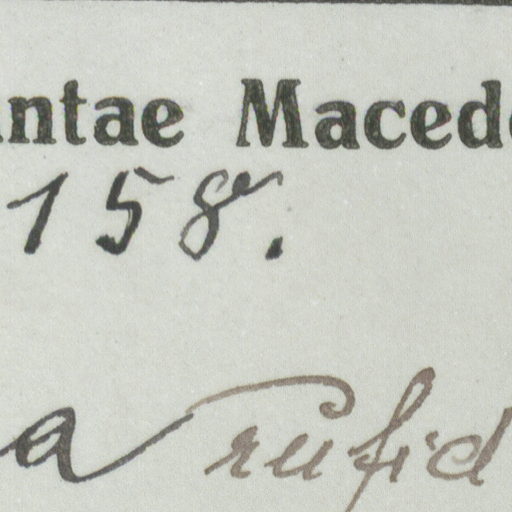 antae Macedo
158.
a rufid